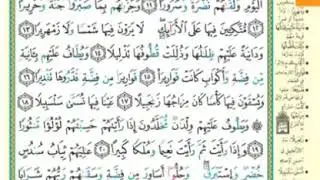 ٱلۡيَوۡمِ وَلَقَّىٰهُمۡ نَضۡرَةٗ وَسُرُورٗا ١١ وَجَزَىٰهُم بِمَا صَبَرُواْ جَنَّةٗ وَحَرِيرٗا
١٢ مُّتَّكِـِٔينَ فِيهَا عَلَى ٱلۡأَرَآئِكِۖ لَا يَرَوۡنَ فِيهَا شَمۡسٗا وَلَا زَمۡهَرِيرٗا ١٣
وَدَانِيَةً عَلَيۡهِمۡ ظِلَٰلُهَا وَذُلِّلَتۡ قُطُوفُهَا تَذۡلِيلٗا ١٤ وَيُطَافُ عَلَيۡهِم بِـَٔانِيَةٖ
مِّن فِضَّةٖ وَأَكۡوَابٖ كَانَتۡ قَوَارِيرَا۠ ١٥ قَوَارِيرَاْ مِن فِضَّةٖ قَدَّرُوهَا تَقۡدِيرٗا
١٦ وَيُسۡقَوۡنَ فِيهَا كَأۡسٗا كَانَ مِزَاجُهَا زَنجَبِيلًا ١٧ عَيۡنٗا فِيهَا تُسَمَّىٰ سَلۡسَبِيلٗا
١٨ وَيَطُوفُ عَلَيۡهِمۡ وِلۡدَٰنٞ مُّخَلَّدُونَ إِذَا رَأَيۡتَهُمۡ حَسِبۡتَهُمۡ لُؤۡلُؤٗا مَّنثُورٗا
١٩ وَإِذَا رَأَيۡتَ ثَمَّ رَأَيۡتَ نَعِيمٗا وَمُلۡكٗا كَبِيرًا ٢٠ عَٰلِيَهُمۡ ثِيَابُ سُندُسٍ
خُضۡرٞ وَإِسۡتَبۡرَقٞۖ وَحُلُّوٓاْ أَسَاوِرَ مِن فِضَّةٖ وَسَقَىٰهُمۡ رَبُّهُمۡ شَرَابٗا